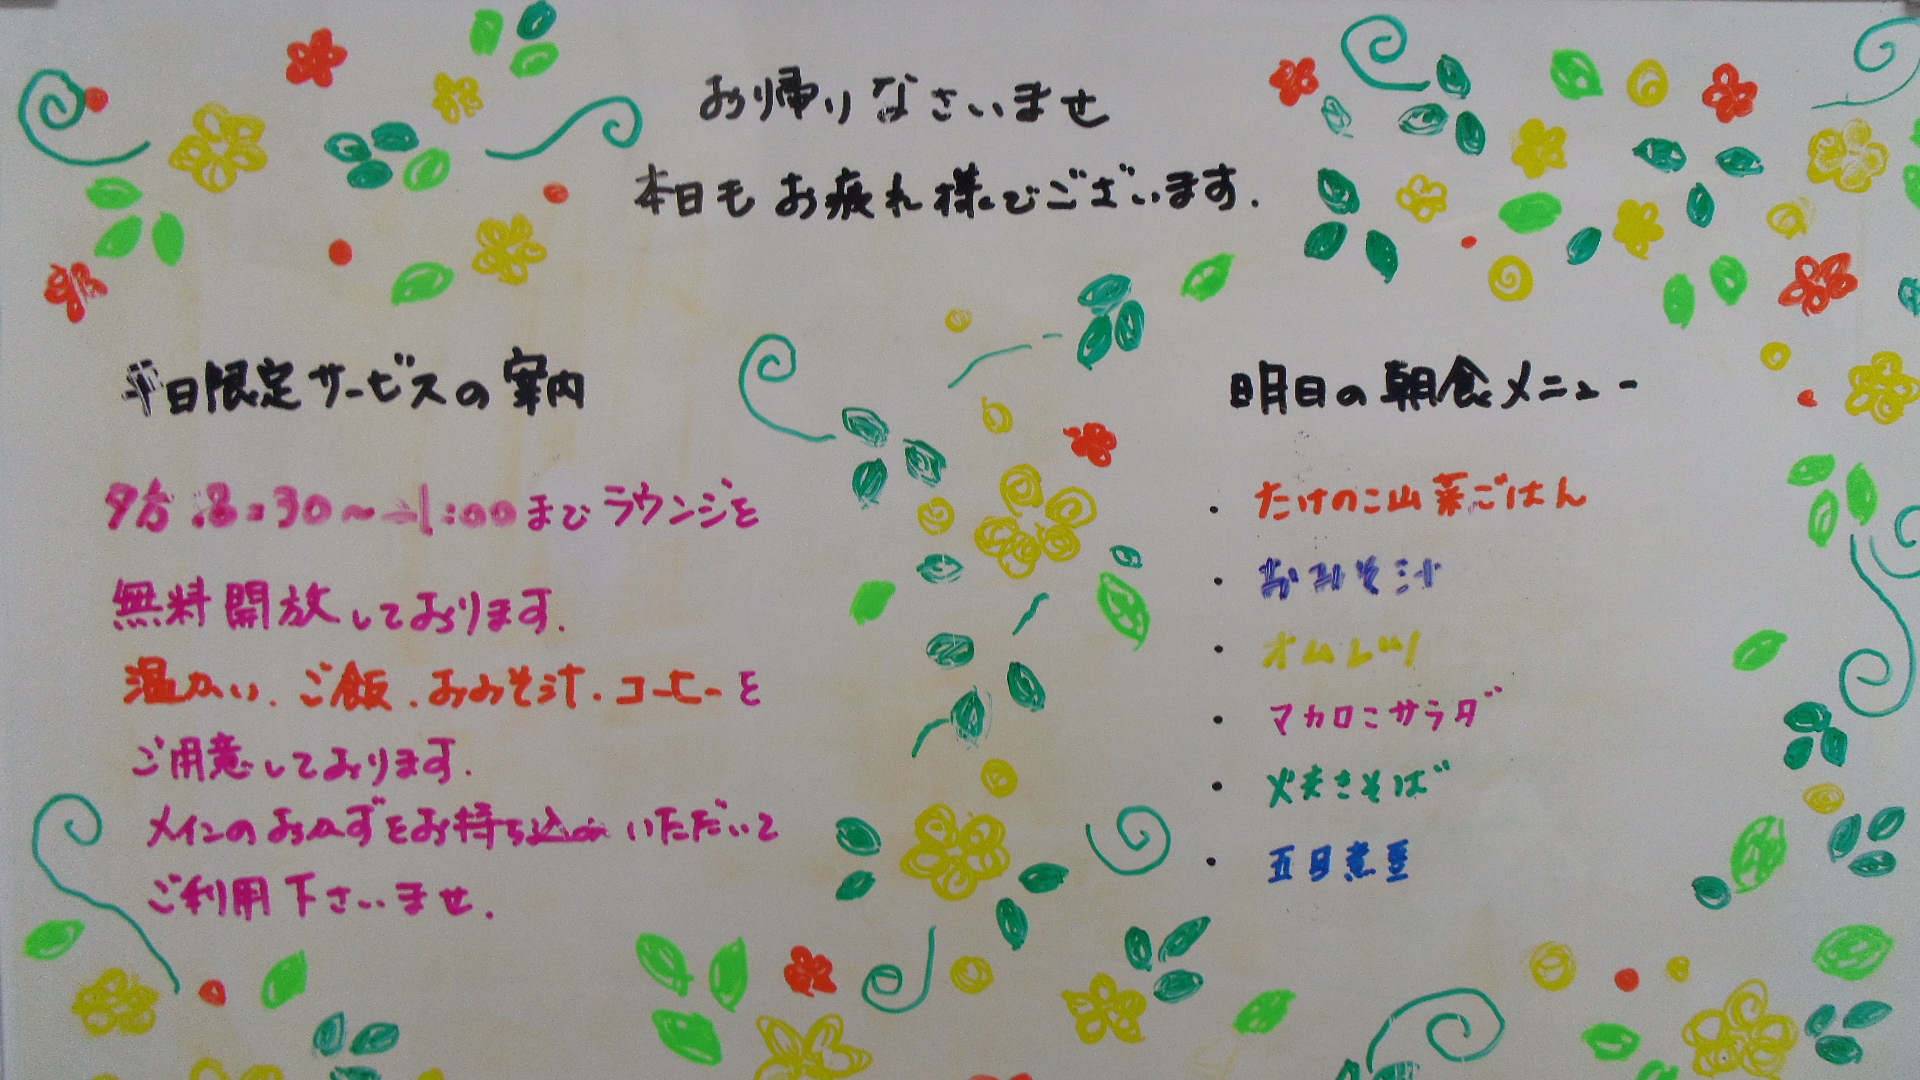 お帰りなさいませ
本日もお疲れ様でございます.
平日限定サービスの案内
夕方 :30～ 1:00までラウンジを
無料開放しております.
温かい.ご飯.おみそ汁.コーヒーを
ご用意しております.
メインのおかずをお持ち込みいただいて
ご利用下さいませ.
明日の朝食メニュー
・たけのこ山菜ごはん
・おみそ汁
・オムレツ
・マカロニサラダ
・焼きそば
・五目煮豆